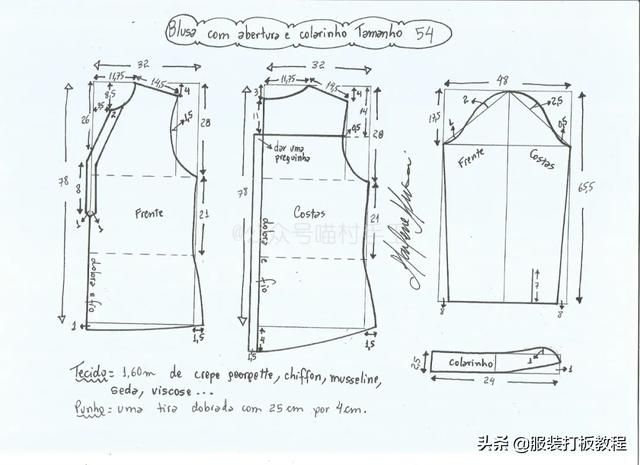 Blusa com abertura e colarinho Tamanho 54
32
11,75
14,5
4
8,5
3,5
2
26
1,5
28
78
8
21
Frente
1
1
dobra e fio
1
1,5
32
11,75
14,5
3
4
11
14
0,5
28
dar uma preguinha
78
Costas
21
dobra e fio
4
1,5
1,5
48
2
2,5
17,5
1
0,5
Frente
Costas
65,5
7
8
8
2,5
Colarinho
1
1
24
Tecido = 1,60m de crepe georgette, chiffon, musseline,
seda, viscose ...
Punho = uma tira dobrada com 25 cm por 4 cm.
头条 @服装打板教程